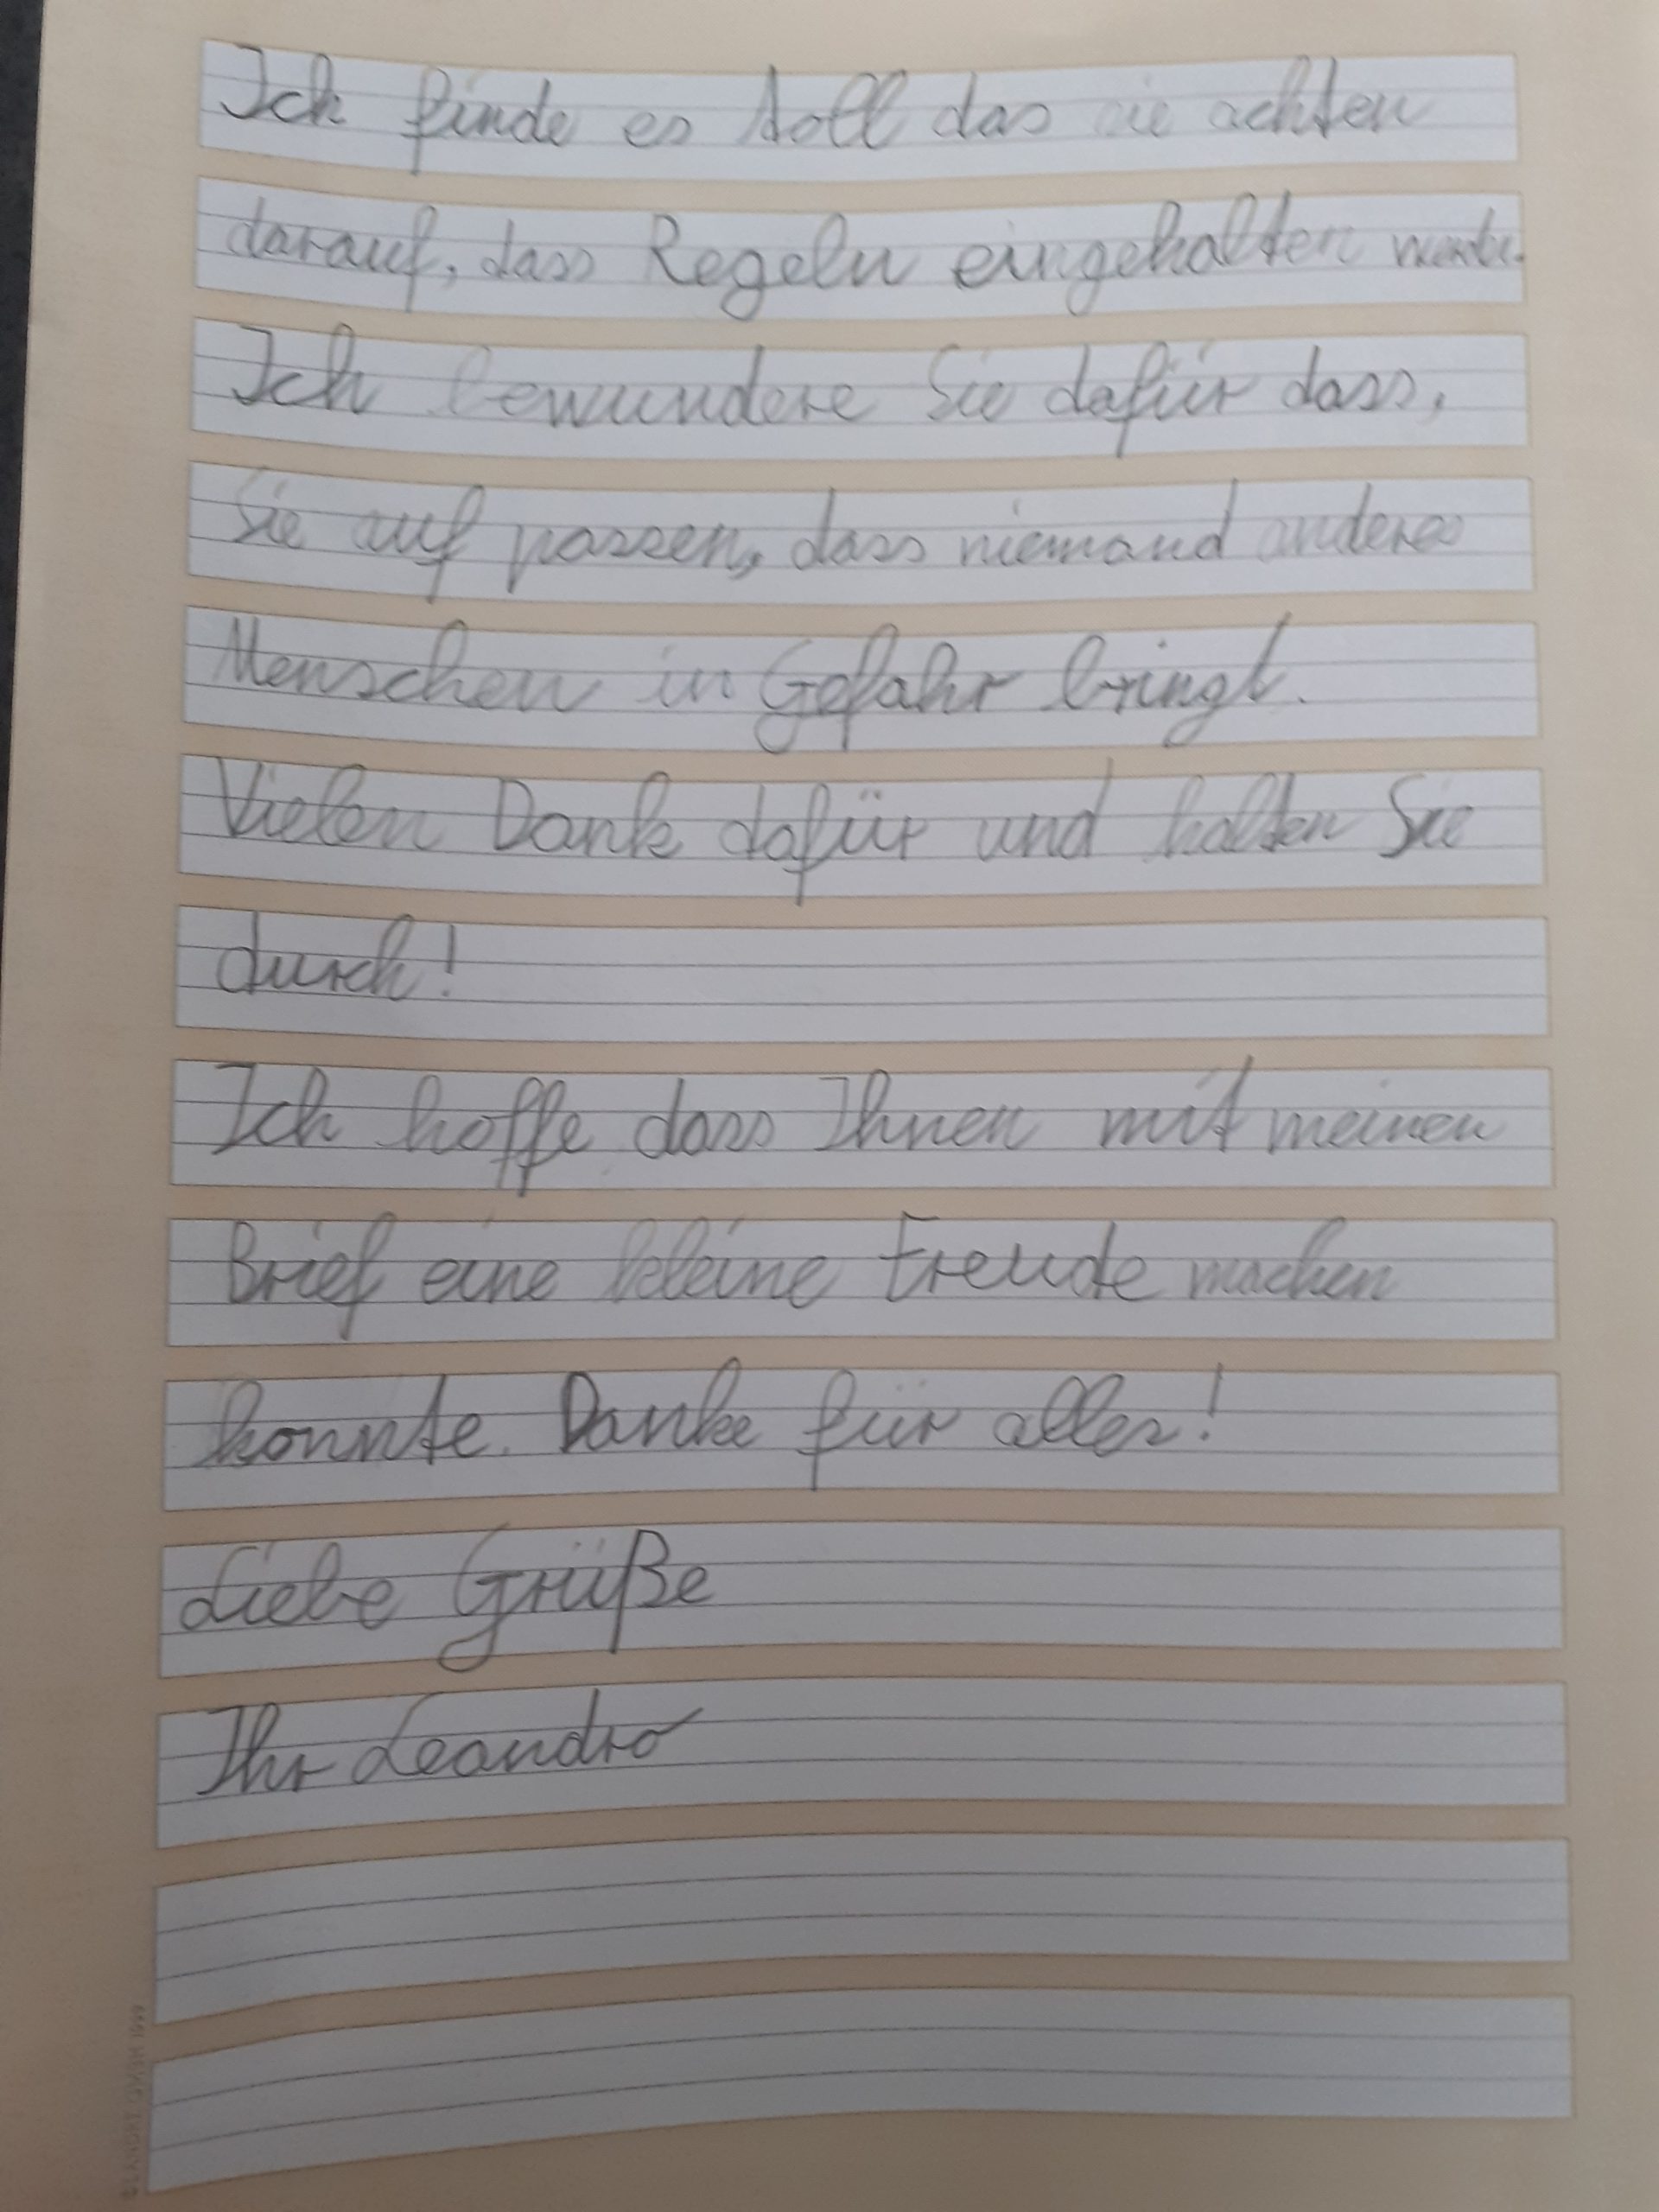 Ich finde es toll das sie achten
darauf, dass Regeln eingehalten werden.
Ich bewundere Sie dafür dass,
Sie auf passen, dass niemand anderes
Menschen in Gefahr bringt.
Vielen Dank dafür und halten Sie
durch!
Ich hoffe dass Ihnen mit meinen
Brief eine kleine Freude machen
konnte. Danke für alles!
Liebe Grüße
Ihr Leandro